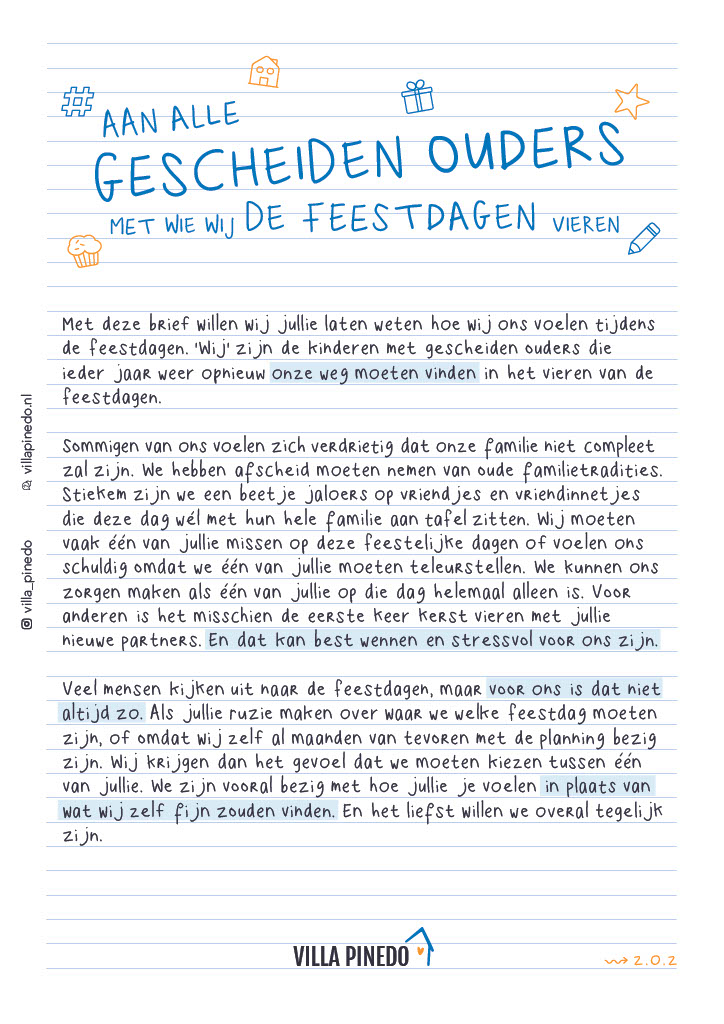 AAN ALLE
GESCHEIDEN OUDERS
MET WIE WIJ DE FEESTDAGEN VIEREN
Met deze brief willen wij jullie laten weten hoe wij ons voelen tijdens
de feestdagen. 'Wij' zijn de kinderen met gescheiden ouders die
ieder jaar weer opnieuw onze weg moeten vinden in het vieren van de
feestdagen.
Sommigen van ons voelen zich verdrietig dat onze familie niet compleet
zal zijn. We hebben afscheid moeten nemen van oude familietradities.
Stiekem zijn we een beetje jaloers op vriendjes en vriendinnetjes
die deze dag wél met hun hele familie aan tafel zitten. Wij moeten
vaak één van jullie missen op deze feestelijke dagen of voelen ons
schuldig omdat we één van jullie moeten teleurstellen. We kunnen ons
zorgen maken als één van jullie op die dag helemaal alleen is. Voor
anderen is het misschien de eerste keer kerst vieren met jullie
nieuwe partners. En dat kan best wennen en stressvol voor ons zijn.
Veel mensen kijken uit naar de feestdagen, maar voor ons is dat niet
altijd zo. Als jullie ruzie maken over waar we welke feestdag moeten
zijn, of omdat wij zelf al maanden van tevoren met de planning bezig
zijn. Wij krijgen dan het gevoel dat we moeten kiezen tussen één
van jullie. We zijn vooral bezig met hoe jullie je voelen in plaats van
wat wij zelf fijn zouden vinden. En het liefst willen we overal tegelijk
zijn.
villapinedo.nl
villa_pinedo
VILLA PINEDO
2.0.2